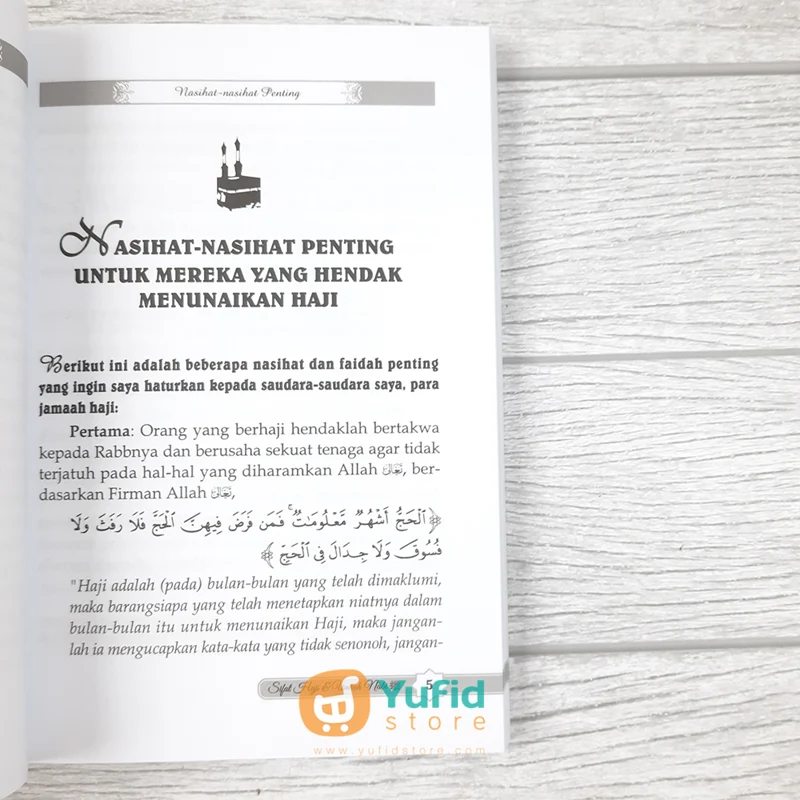 Nasihat-nasihat Penting
NASIHAT-NASIHAT PENTING
UNTUK MEREKA YANG HENDAK
MENUNAIKAN HAJI
Berikut ini adalah beberapa nasihat dan faidah penting
yang ingin saya haturkan kepada saudara-saudara saya, para
jamaah haji:
Pertama: Orang yang berhaji hendaklah bertakwa
kepada Rabbnya dan berusaha sekuat tenaga agar tidak
terjatuh pada hal-hal yang diharamkan Allah تعالى, ber-
dasarkan Firman Allah تعالى,
﴿ٱلْحَجُّ أَشْهُرٌ مَّعْلُومَٰتٌ ۚ فَمَن فَرَضَ فِيهِنَّ ٱلْحَجَّ فَلَا رَفَثَ وَلَا
فُسُوقَ وَلَا جِدَالَ فِى ٱلْحَجِّ﴾
"Haji adalah (pada) bulan-bulan yang telah dimaklumi,
maka barangsiapa yang telah menetapkan niatnya dalam
bulan-bulan itu untuk menunaikan Haji, maka jangan-
lah ia mengucapkan kata-kata yang tidak senonoh, jangan-
Sifat Haji & 5
Yufid
store
www.yufidstore.com